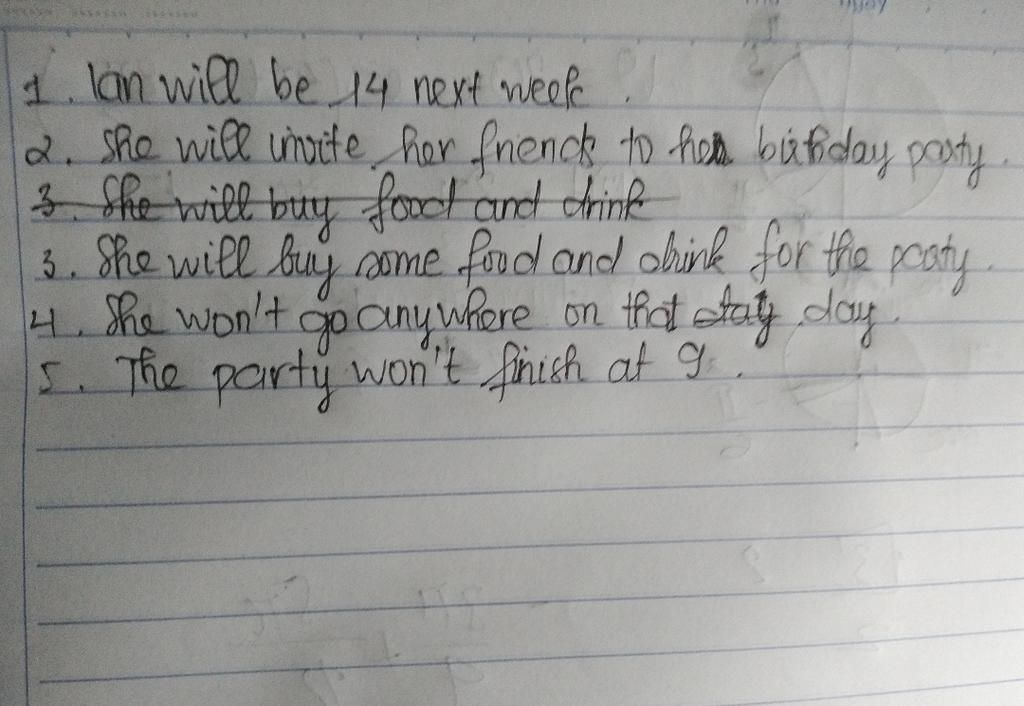 1. Ian will be 14 next week.
2. She will invite her friends to her birthday party.
3. She will buy food and drink
3. She will buy some food and drink for the party.
4. She won't go anywhere on that day.
5. The party won't finish at 9.